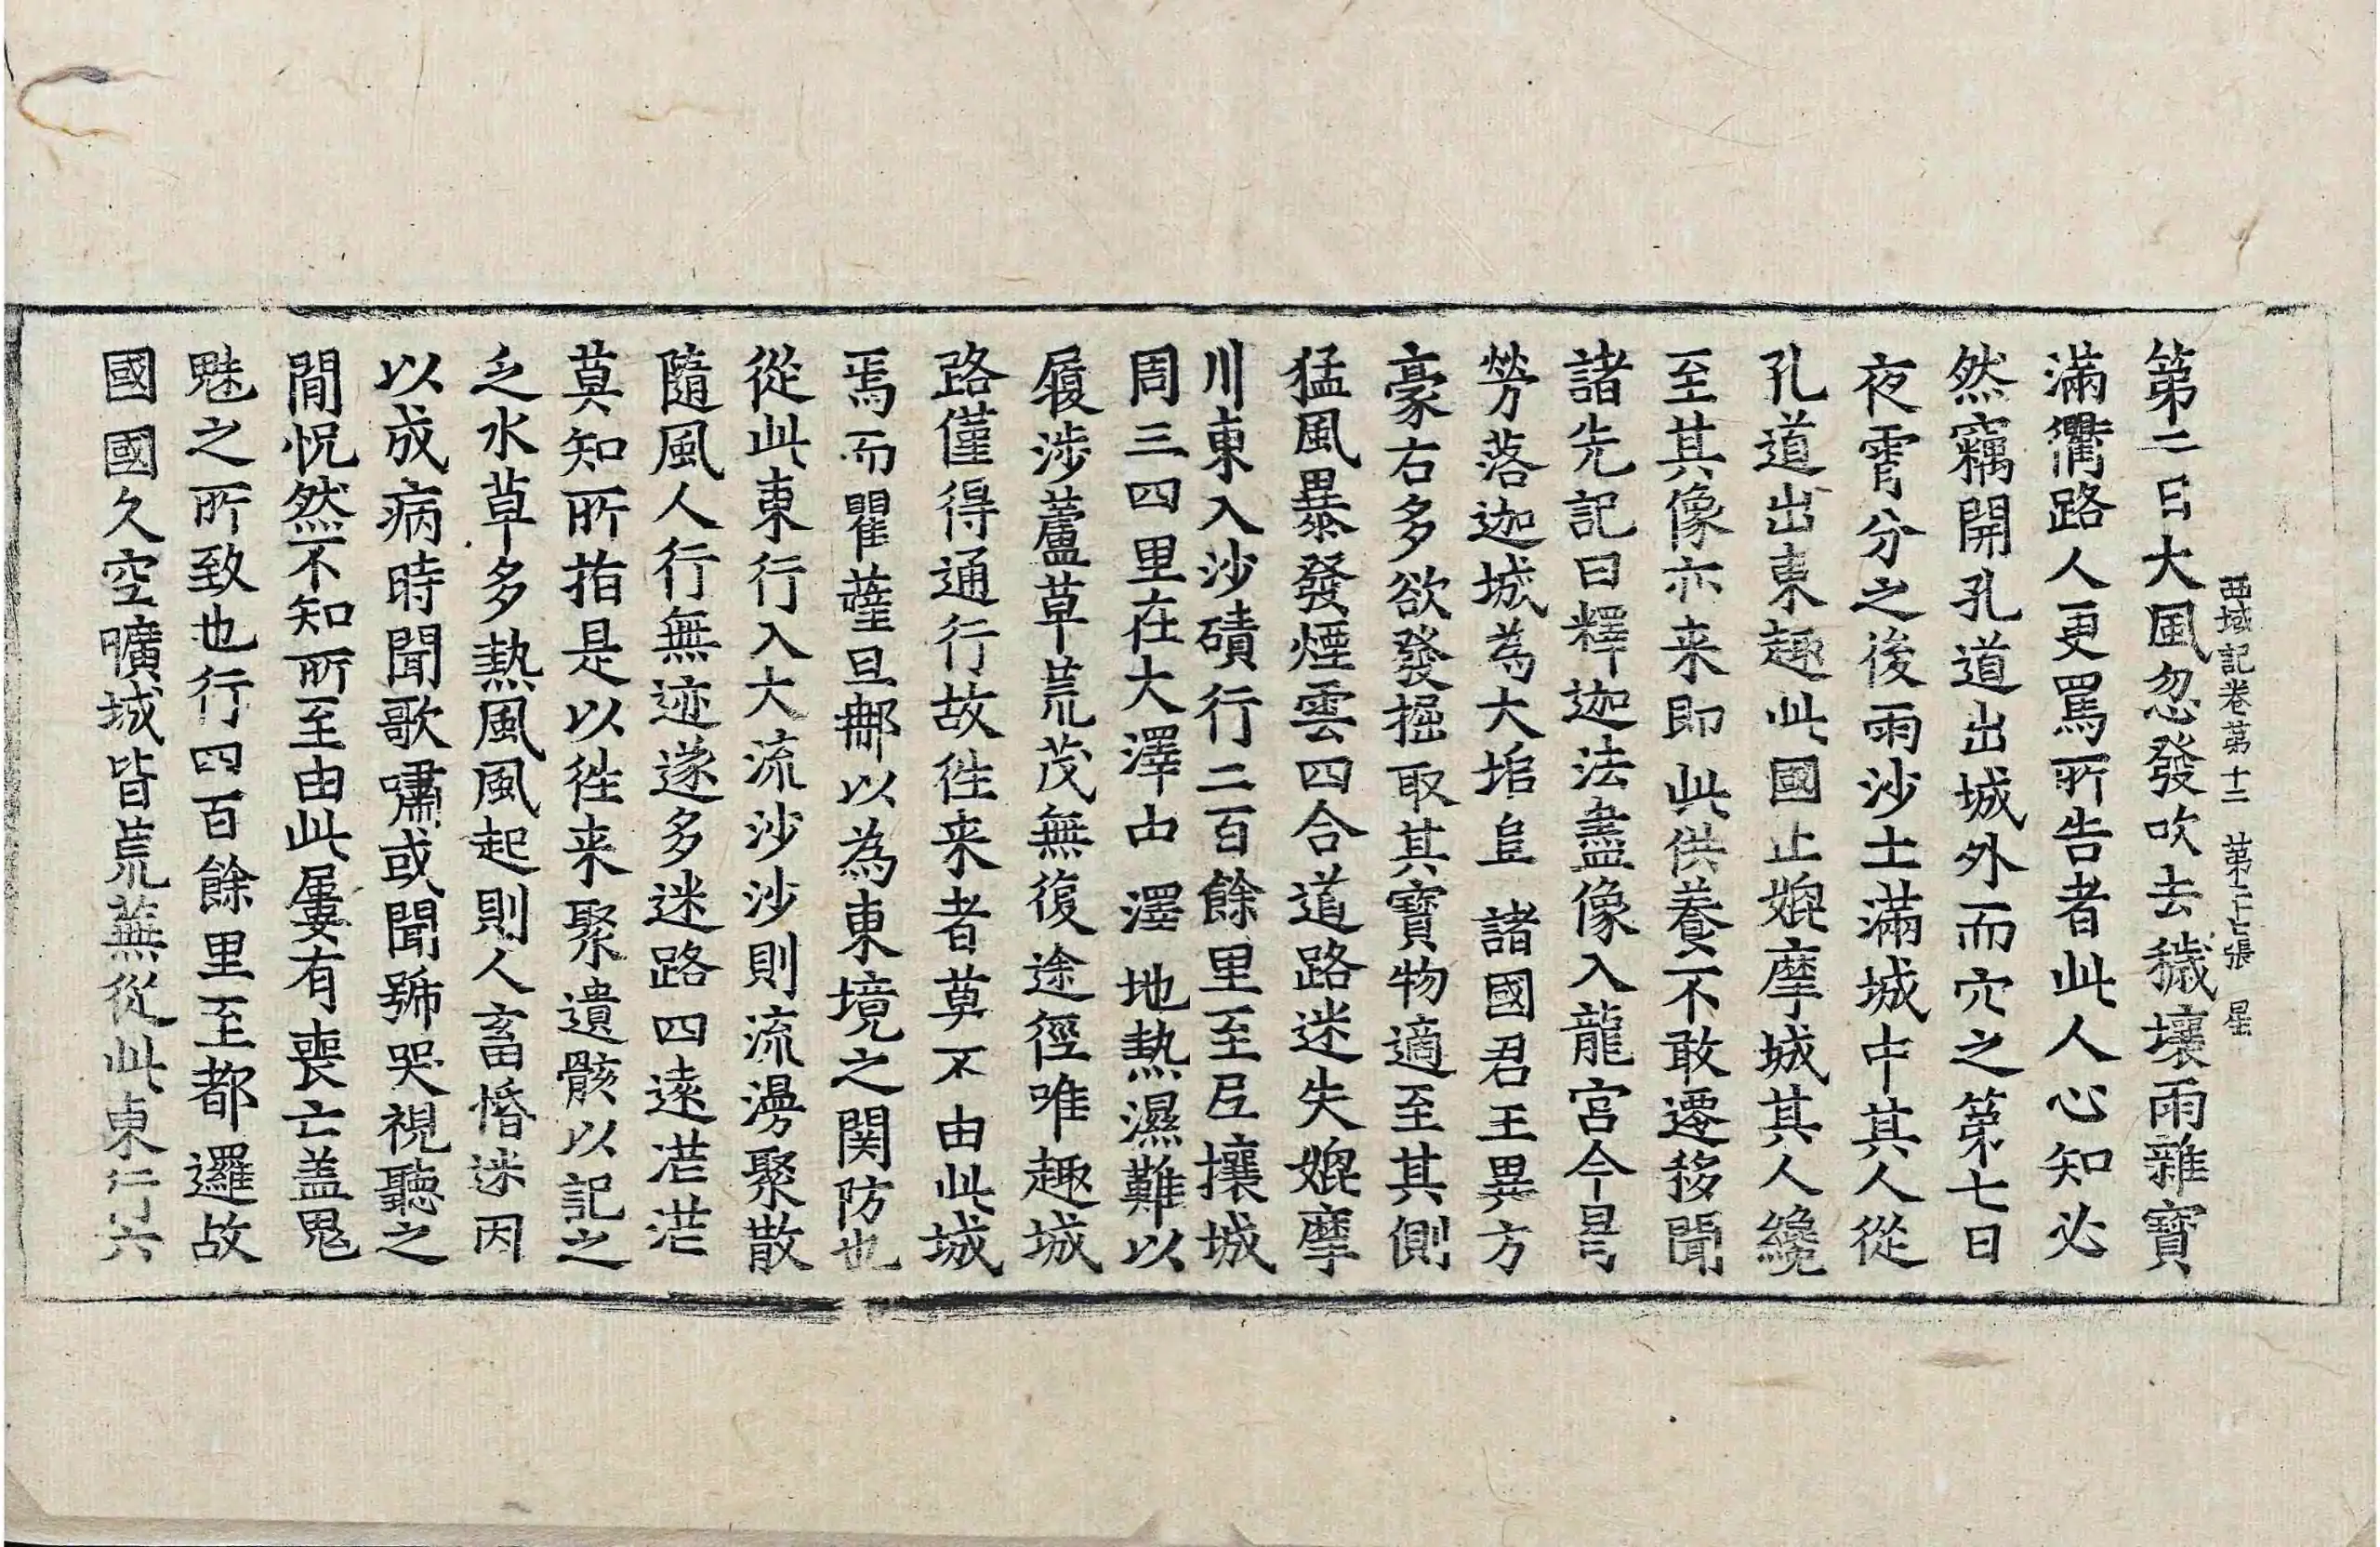 西域記卷第十二　第二十七張　星
第二日大風忽發吹去穢壤雨雜寶
滿衢路人更罵所告者此人心知必
然竊開孔道出城外而穴之第七日
夜霄分之後雨沙土滿城中其人從
孔道出東趣此國止媲摩城其人纔
至其像亦来即此供養不敢遷移聞
諸先記曰釋迦法盡像入龍宮今曷
勞落迦城為大堆阜諸國君王異方
豪右多欲發掘取其寶物適至其側
猛風暴發煙雲四合道路迷失媲摩
川東入沙磧行二百餘里至尼壤城
周三四里在大澤中澤地熱濕難以
履涉蘆草荒茂無復途徑唯趣城
路僅得通行故徃来者莫不由此城
焉而瞿薩旦那以為東境之関防也
從此東行入大流沙沙則流漫聚散
隨風人行無迹遂多迷路四遠茫茫
莫知所指是以徃来聚遺骸以記之
乏水草多熱風風起則人畜惛迷因
以成病時聞歌嘯或聞號哭視聽之
間怳然不知所至由此屢有喪亡盖鬼
魅之所致也行四百餘里至都邏故
國國久空曠城皆荒蕪從此東行六